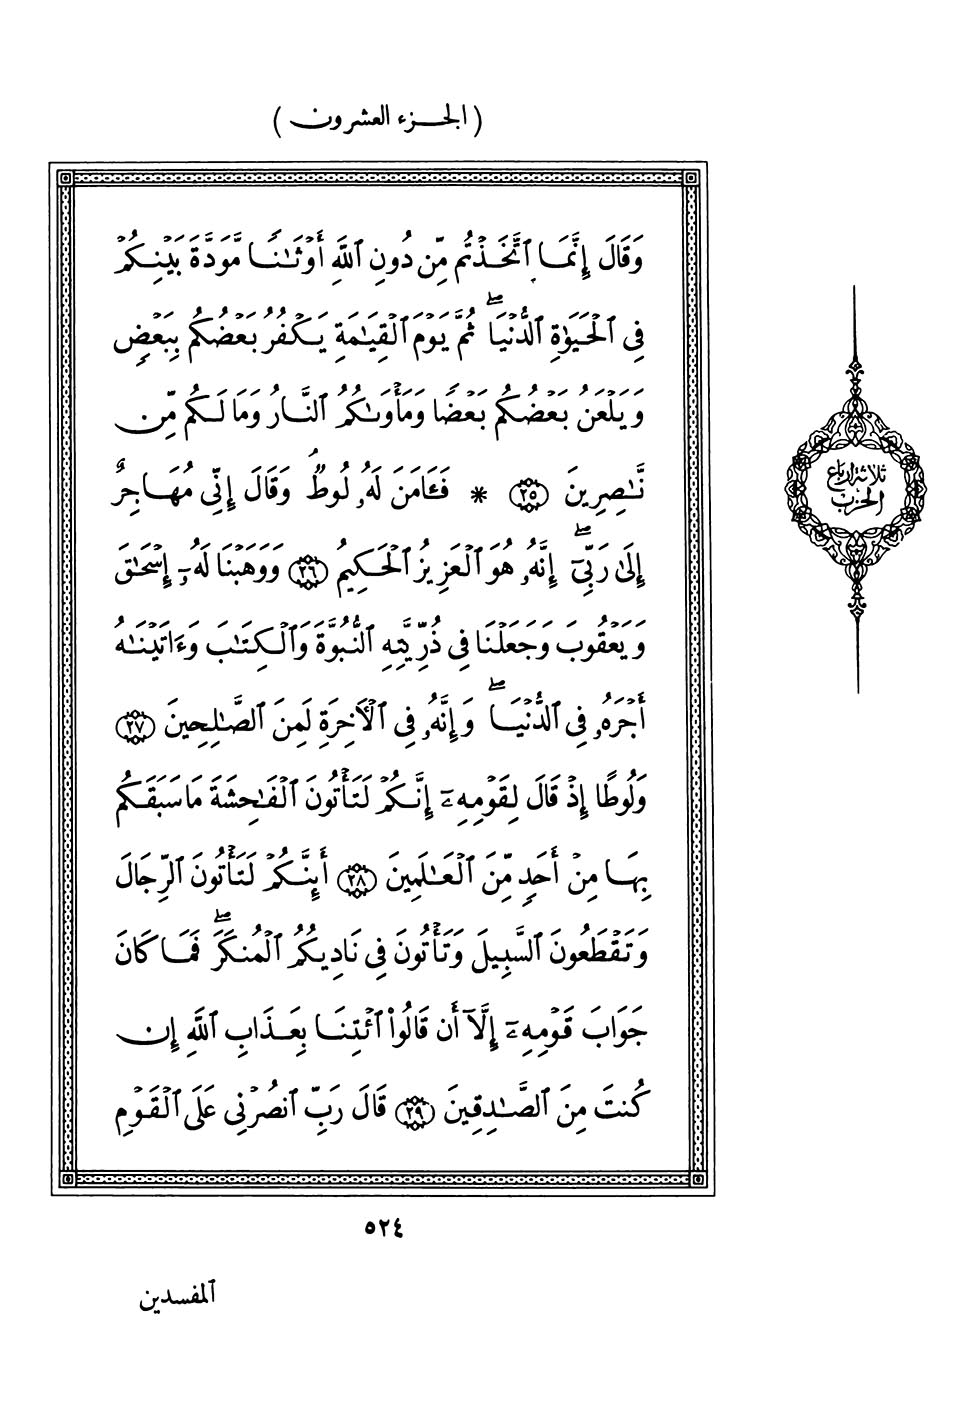 ( الجزء العشرون )
وَقَالَ إِنَّمَا ٱتَّخَذۡتُم مِّن دُونِ ٱللَّهِ أَوۡثَٰنٗا مَّوَدَّةَ بَيۡنِكُمۡ
فِي ٱلۡحَيَوٰةِ ٱلدُّنۡيَاۖ ثُمَّ يَوۡمَ ٱلۡقِيَٰمَةِ يَكۡفُرُ بَعۡضُكُم بِبَعۡضٖ
وَيَلۡعَنُ بَعۡضُكُم بَعۡضٗا وَمَأۡوَىٰكُمُ ٱلنَّارُ وَمَا لَكُم مِّن
نَّٰصِرِينَ ٢٥ * فَـَٔامَنَ لَهُۥ لُوطٞۘ وَقَالَ إِنِّي مُهَاجِرٌ
إِلَىٰ رَبِّيٓۖ إِنَّهُۥ هُوَ ٱلۡعَزِيزُ ٱلۡحَكِيمُ ٢٦ وَوَهَبۡنَا لَهُۥٓ إِسۡحَٰقَ
وَيَعۡقُوبَ وَجَعَلۡنَا فِي ذُرِّيَّتِهِ ٱلنُّبُوَّةَ وَٱلۡكِتَٰبَ وَءَاتَيۡنَٰهُ
أَجۡرَهُۥ فِي ٱلدُّنۡيَاۖ وَإِنَّهُۥ فِي ٱلۡأٓخِرَةِ لَمِنَ ٱلصَّٰلِحِينَ ٢٧
وَلُوطًا إِذۡ قَالَ لِقَوۡمِهِۦٓ إِنَّكُمۡ لَتَأۡتُونَ ٱلۡفَٰحِشَةَ مَا سَبَقَكُم
بِهَا مِنۡ أَحَدٖ مِّنَ ٱلۡعَٰلَمِينَ ٢٨ أَئِنَّكُمۡ لَتَأۡتُونَ ٱلرِّجَالَ
وَتَقۡطَعُونَ ٱلسَّبِيلَ وَتَأۡتُونَ فِي نَادِيكُمُ ٱلۡمُنكَرَۖ فَمَا كَانَ
جَوَابَ قَوۡمِهِۦٓ إِلَّآ أَن قَالُواْ ٱئۡتِنَا بِعَذَابِ ٱللَّهِ إِن
كُنتَ مِنَ ٱلصَّٰدِقِينَ ٢٩ قَالَ رَبِّ ٱنصُرۡنِي عَلَى ٱلۡقَوۡمِ
ثلاثة أرباع
الحزب
٥٢٤
ٱلمفسدين